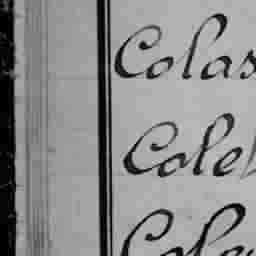 Colas
Cole
Cole